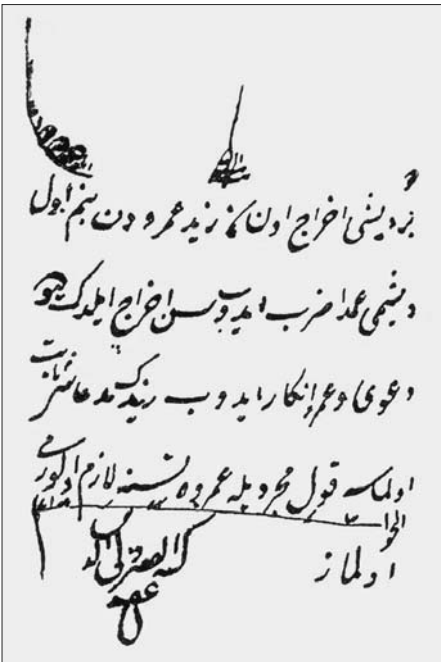 بر ديشى اخراج اولنان زيد عمرودن بنم اول
ديشمى عمدا ضرب ايدوب سن اخراج ايلدك ديو
دعوى و عمرو انكار ايدوب زيدك مدعاسى ثابت
اولماسه قول مجرديله عمروه نسنه لازم اولورمى
الجواب
اولماز
كتبه الفقير